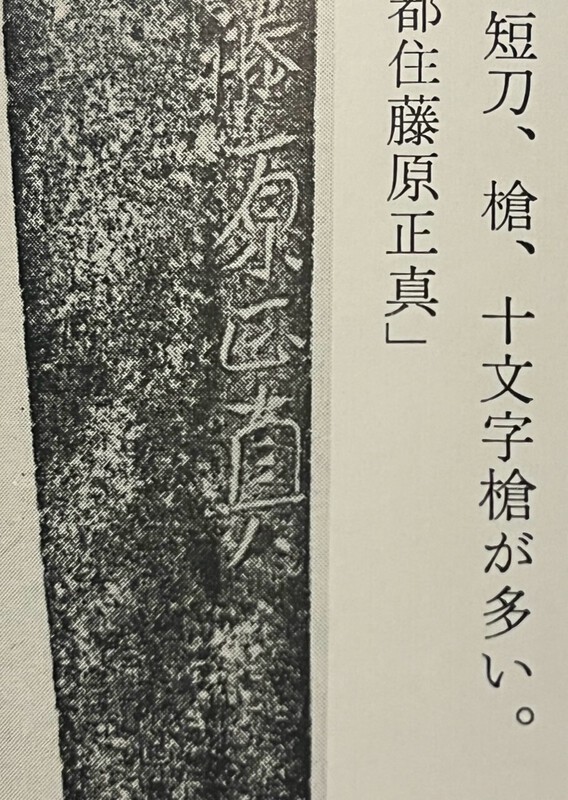 短刀、槍、十文字槍が多い。
都住藤原正真」
藤原正真